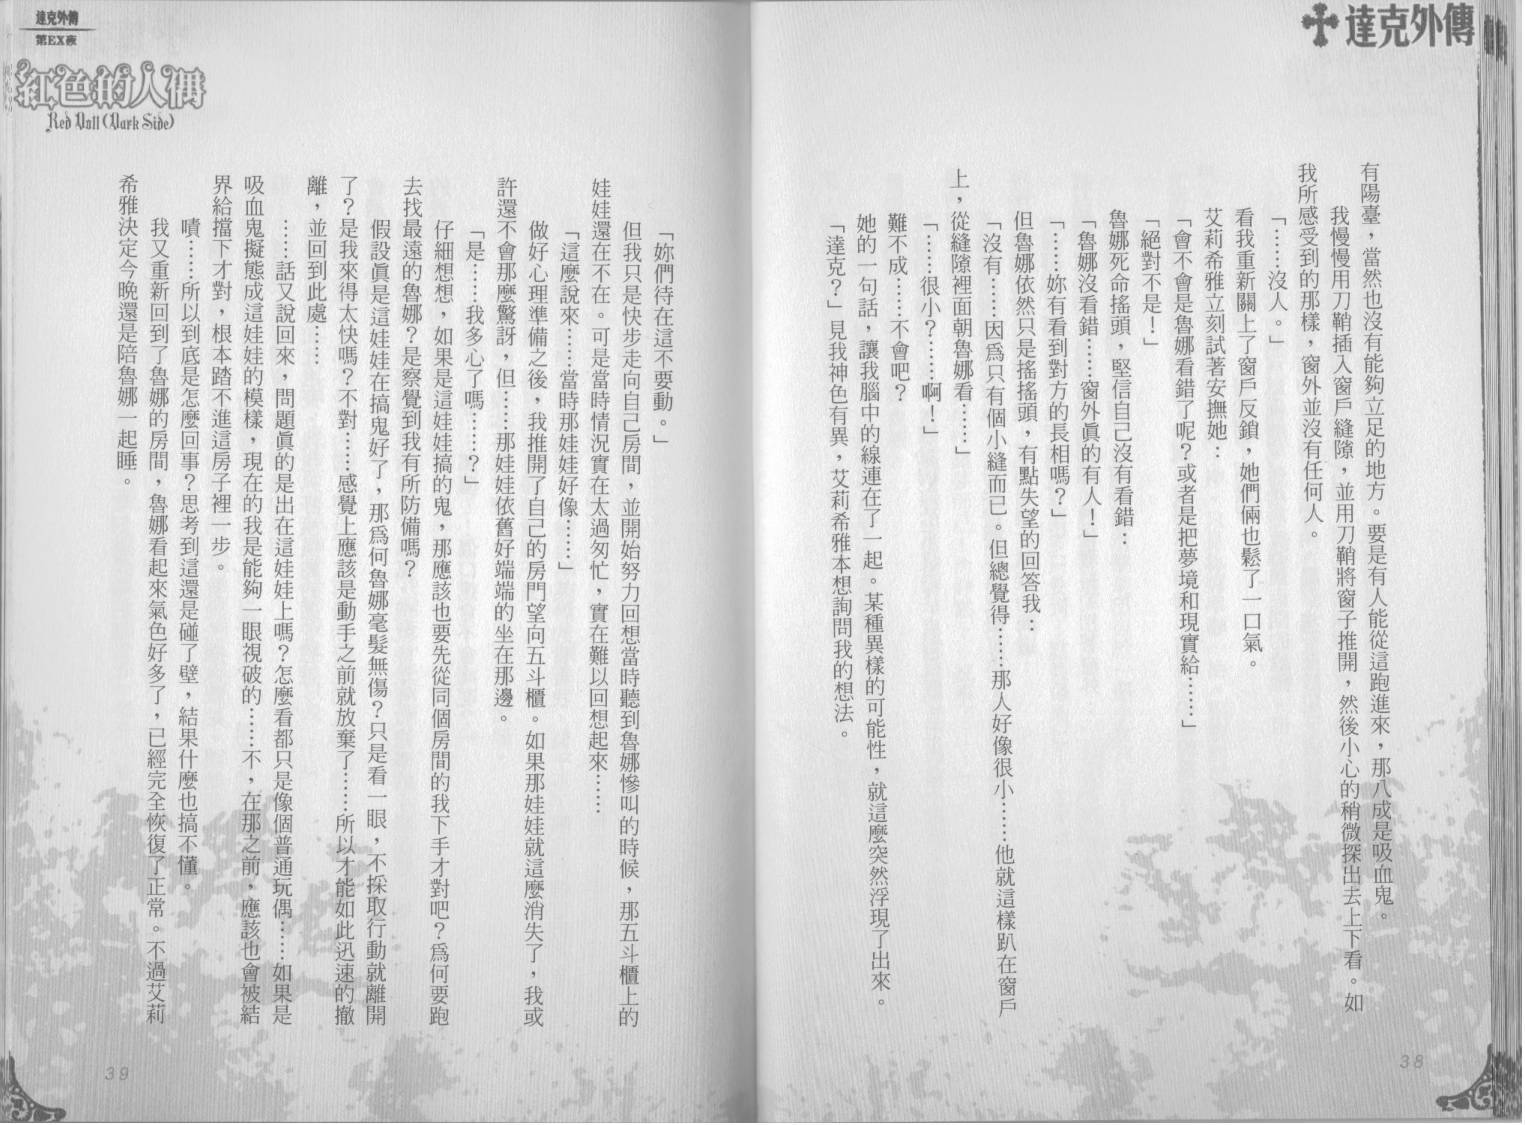 達克外傳
有陽臺，當然也沒有能夠立足的地方。要是有人能從這跑進來，那八成是吸血鬼。
我慢慢用刀鞘插入窗戶縫隙，並用刀鞘將窗子推開，然後小心的稍微探出去上下看。如
我所感受到的那樣，窗外並沒有任何人。
「……沒人。」
看我重新關上了窗戶反鎖，她們倆也鬆了一口氣。
艾莉希雅立刻試著安撫她：
「會不會是魯娜看錯了呢？或者是把夢境和現實給……」
「絕對不是！」
魯娜死命搖頭，堅信自己沒有看錯：
「魯娜沒看錯……窗外真的有人！」
「……妳有看到對方的長相嗎？」
但魯娜依然只是搖搖頭，有點失望的回答我：
「沒有……因為只有個小縫而已。但總覺得……那人好像很小……他就這樣趴在窗戶
上，從縫隙裡面朝魯娜看……」
「……很小？……啊！」
難不成……不會吧？
她的一句話，讓我腦中的線連在了一起。某種異樣的可能性，就這麼突然浮現了出來。
「達克？」見我神色有異，艾莉希雅本想詢問我的想法。
38
達克外傳
第EX夜
紅色的人偶
Red Doll (Dark Side)
「妳們待在這不要動。」
但我只是快步走向自己房間，並開始努力回想當時聽到魯娜慘叫的時候，那五斗櫃上的
娃娃還在不在。可是當時情況實在太過匆忙，實在難以回想起來……
「這麼說來……當時那娃娃好像……」
做好心理準備之後，我推開了自己的房門望向五斗櫃。如果那娃娃就這麼消失了，我或
許還不會那麼驚訝，但……那娃娃依舊好端端的坐在那邊。
「是……我多心了嗎……？」
仔細想想，如果是這娃娃搞的鬼，那應該也要先從同個房間的我下手才對吧？為何要跑
去找最遠的魯娜？是察覺到我有所防備嗎？
假設真是這娃娃在搞鬼好了，那為何魯娜毫髮無傷？只是看一眼，不採取行動就離開
了？是我來得太快嗎？不對……感覺上應該是動手之前就放棄了……所以才能如此迅速的撤
離，並回到此處……
……話又說回來，問題真的是出在這娃娃上嗎？怎麼看都只是像個普通玩偶……如果是
吸血鬼擬態成這娃娃的模樣，現在的我是能夠一眼視破的……不，在那之前，應該也會被結
界給擋下才對，根本踏不進這房子裡一步。
嘖……所以到底是怎麼回事？思考到這還是碰了壁，結果什麼也搞不懂。
我又重新回到了魯娜的房間，魯娜看起來氣色好多了，已經完全恢復了正常。不過艾莉
希雅決定今晚還是陪魯娜一起睡。
39